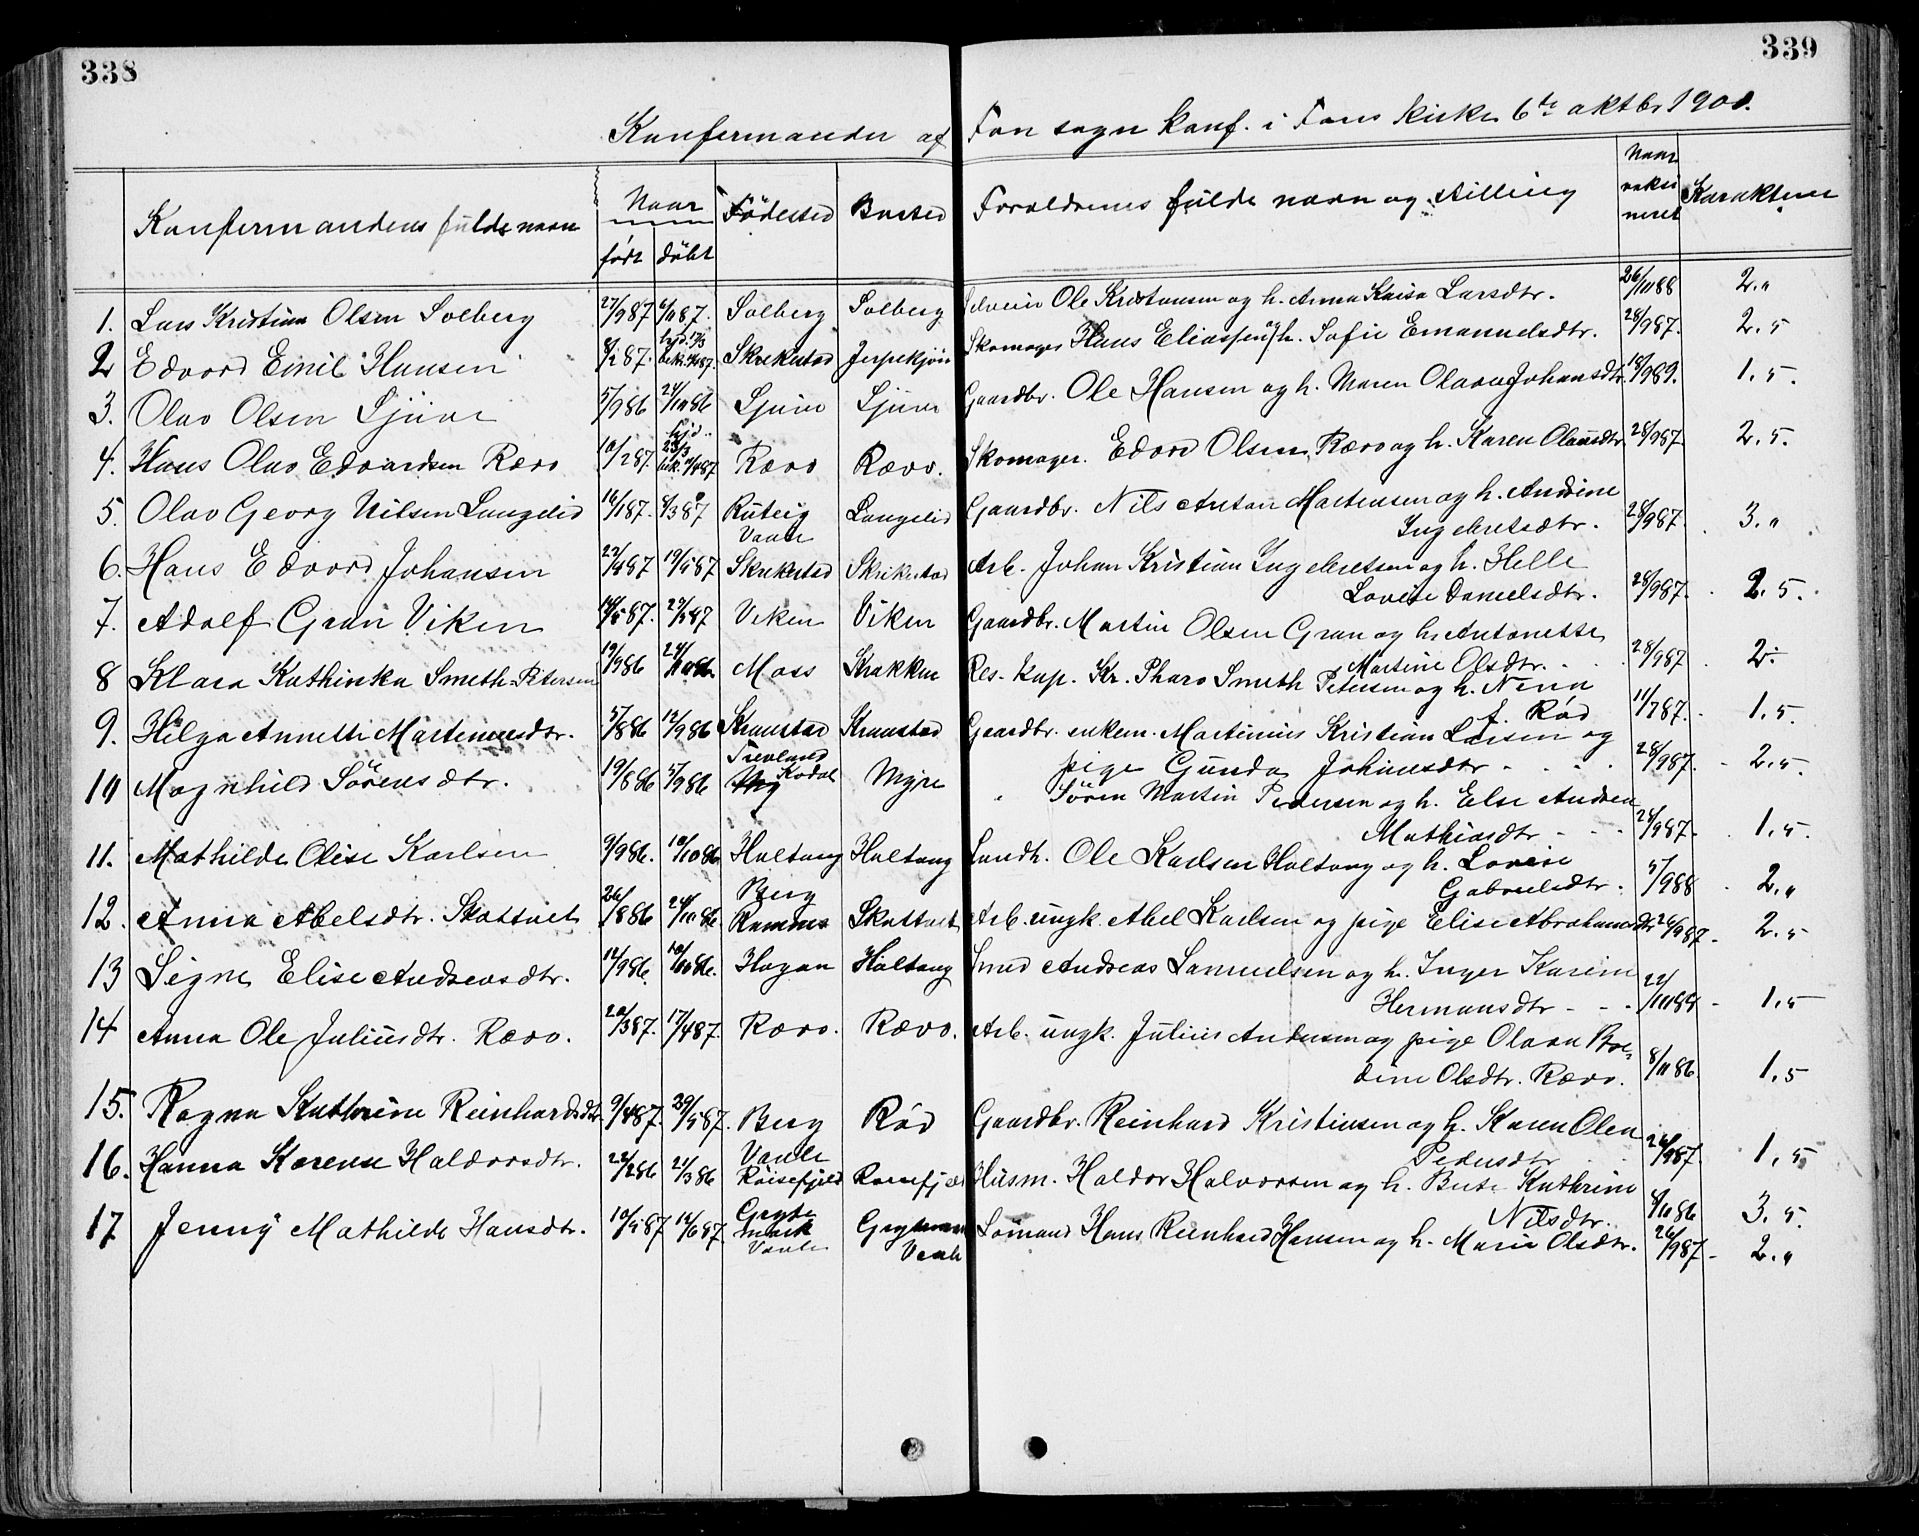 338
339
Konfirmander af Fon sogn konf. i Fons kirke 6te oktbr 1901.
Konfirmandens fulde navn Naar født døbt Födested Bosted Forældrenes fulde navn og stilling Naar vaksineret Karakterer
1. Lars Kristian Olsen Solberg 27/987 6/1187. Solberg Solberg Selveier Ole Kristensen og h. Anna Kaisa Larsdtr. 26/1188 2.„
2 Edvard Emil Hansen 8/287. hjd. /3 bek. /487. Skrikestad Jerpekjøn Skomager Hans Eliassen og h. Sofie Emanuelsdtr. 28/987. 2.5
3. Olav Olsen Sjüve 5/986 24/1086 Sjuve Sjuve Gaardbr. Ole Hansen og h. Maren Olava Johansdtr. 18/989. 1.5.
4. Hans Olav Edvardsen Rævo 10/287. hjd. 23/3 bek. /487 Rævo Rævo. Skomager. Edvard Olsen Rævo og h. Karen Olausdtr 28/987. 2.5.
5. Olav Georg Nilsen Langelid 16/187. 6/387 Ruteig Vaale Langelid Gaardbr. Nils Anton Martensen og h. Andrine
Ingebretsdtr. 28/987. 3.„
6. Hans Edvard Johansen 22/487 19/587 Skrikestad Skrikestad Arb. Johan Kristian Ingebretsen og h. Helle
Lovise Danielsdtr. 28/987. 2.5.
7. Adolf Gran Viken 14/587. 29/587 Viken Viken Gaardbr. Martin Olsen Gran og h. Antonette
Martine Olsdtr. 28/987 2.
8 Klara Kathinka Smeth-Petersen 19/986 24/1086 Moss Krakken Res. kap. Kr. Pharo Smeth Petersen og h. Nina
f. Rød 11/787. 1.5.
9. Helga Annette Martinusdtr. 5/886 12/986 Kraustad Kraustad Gaardbr. enkem. Martinius Kristian Larsen og
pige Gunda Johinesdtr 28/987. 2.5.
10 Magnhild Sörensdtr. 19/886 5/986 Trevland Kodal Myre „ Sören Martin Pedersen og h. Else Andrea
Mathiasdtr 28/987. 1.5.
11. Mathilde Olise Karlsen 9/986. 10/1086 Holtung Holtung Landh. Ole Karlsen Holtung og h. Lovise
Gabrielsdtr. 5/988 2.„
12. Anna Abelsdtr. Skottvet 26/886 24/1086. Berg Ramnes Skottvet Arb. ungk. Abel Karlsen og pige Elise Abrahamsdtr 26/987. 2.5
13 Signe Elise Andreasdtr. 12/986. 10/1086. Hagan Holtung Smed Andreas Samuelsen og h. Inger Karine
Hermansdtr 22/1188 1.5
14 Anna Ole Juliusdtr. Rævo. 20/387. 17/487. Rævo. Rævo. Arb. ungk. Julius Andersen og pige Olava Bo-
dine Olsdtr. Rævo. 8/1186. 1.5
15. Ragna Kathrine Reinhardsdtr. 9/487. 29/587. Berg Rød Gaardbr. Reinhard Kristiansen og h. Karen Olea
Pedersdtr 26/987. 1.5
16. Hanna Karense Haldorsdtr. 22/286 21/386 Vaale Röisefjeld Ramfjeld Husm. Haldor Halvorsen og h. Berte Kathrine
Nilsdtr. 8/1186 3.5.
17 Jenny Mathilde Hansdtr. 10/587 12/687. Grytemark Vaale Vaale Sømand Hans Reinhard Hansen og h. Marie Olsdtr. 26/987. 2.„